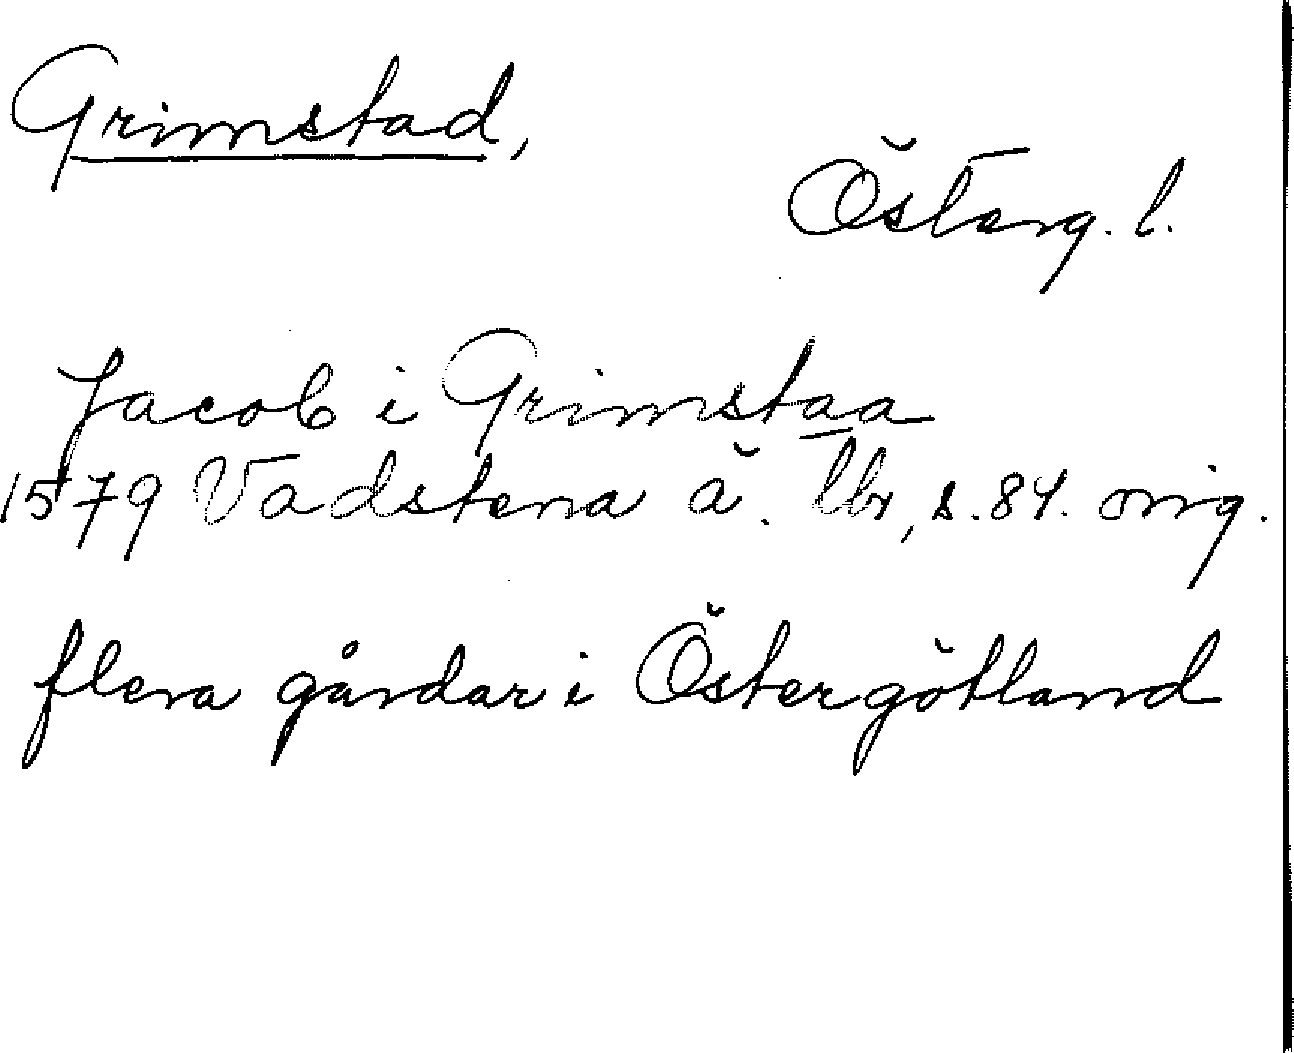 Grimstad,
Österg. l.
Jacob i Grimstaa
1579 Vadstena ä. lbr, s. 84. orig.
flera gårdar i Östergötland